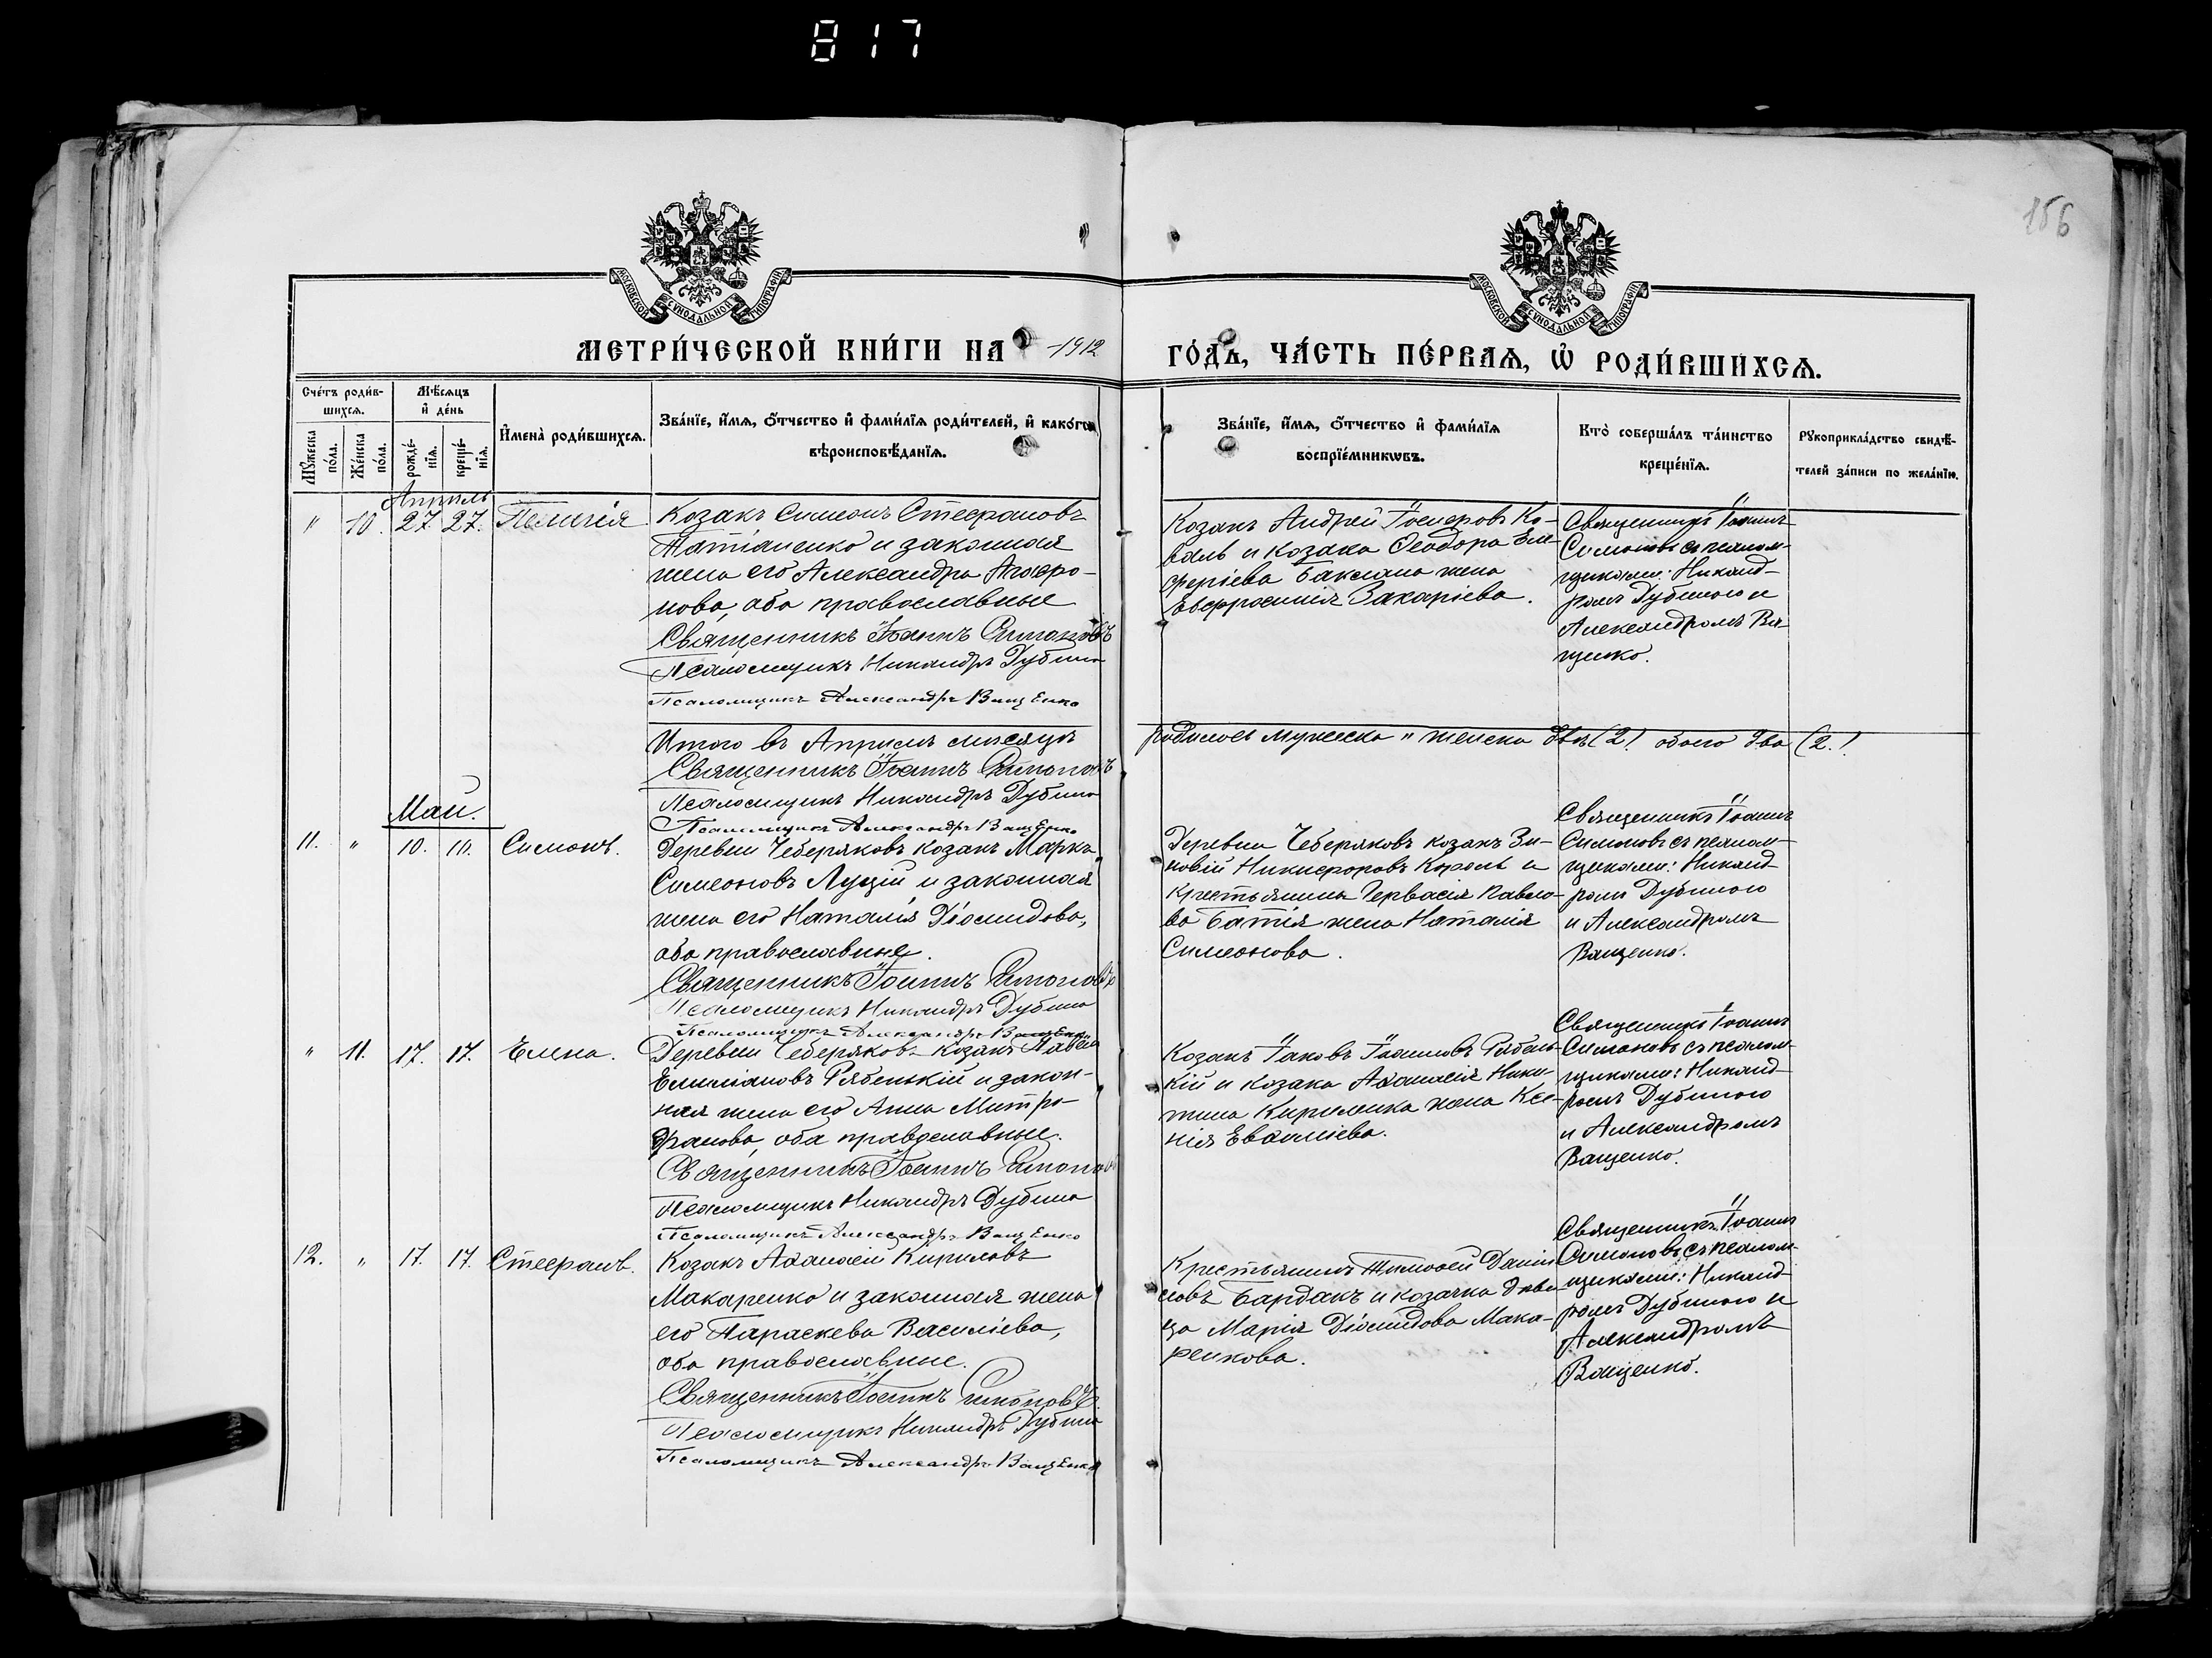 817
156
МОСКОВСКОЙ СѴНОДАЛЬНОЙ ТИПОГРАФІИ
МОСКОВСКОЙ СѴНОДАЛЬНОЙ ТИПОГРАФІИ
МЕТРИ́ЧЕСКОЙ КНИ́ГИ НА 1912
ГО́ДЪ, ЧА́СТЬ ПЕ́РВАѦ, Ѡ҆ РОДИ́ВШИХСѦ.
Сче́тъ роди́в-
шихсѧ.
Мѣ́сѧцъ
и҆ де́нь
Мꙋ́жеска
по́ла.
Же́нска
по́ла.
рожде́-
нїѧ.
креще́-
нїѧ.
И҆мена̀ роди́вшихсѧ.
Зва́нїе, и҆́мѧ, ѻ҆́тчество и҆ фами́лїѧ роди́телей, и҆ како́гѡ
вѣроисповѣ́данїѧ.
Зва́нїе, и҆́мѧ, ѻ҆́тчество и҆ фами́лїѧ
воспрїе́мникѡвъ.
Кто̀ соверша́лъ та́инство
креще́нїѧ.
Рꙋкоприкла́дство свидѣ́-
телей за́писи по жела́нїю.
Апрѣль
" 10. 27. 27. Пелагія
Козакъ Симеонъ Стефановъ
Татіаненко и законная
жена его Александра Агафо-
нова, оба православные
Священникъ Іоаннъ Симоновъ
Псаломщикъ Никандръ Дубина
Псаломщикъ Александръ Ващенко
Козакъ Андрей Ко-
валь и козака Ѳеодора Еле-
феріева жена
Евфросинія Захаріева.
Священникъ Іоаннъ
Симоновъ съ псалом-
щиками: Никанд-
ромъ Дубиною и
Александромъ Ва-
щенко.
Итого въ Апрѣлѣ мѣсяцѣ
родилось мужеска " женска двѣ (2) обоего два (2.)
Священникъ Іоаннъ Симоновъ
Псаломщикъ Никандръ Дубина
Псаломщикъ Александръ Ващенко
Май.
11. " 10. 10. Симонъ.
Деревни Чеберяковъ козакъ Маркъ
Симеоновъ Луцій и законная
жена его Наталія Діомидова,
оба православные.
Священникъ Іоаннъ Симоновъ
Псаломщикъ Никандръ Дубина
Псаломщикъ Александръ Ващенко
Деревни Чеберяковъ козакъ Зи-
новій Никифоровъ Король и
крестьянина Гервасія Павло-
ва Батія жена Наталія
Симеонова.
Священникъ Іоаннъ
Симоновъ съ псалом-
щиками: Никанд-
ромъ Дубиною
и Александромъ
Ващенко.
" 11. 17. 17. Елена.
Деревни Чеберяковъ козакъ Павелъ
Емиліановъ Рябенькій и закон-
ная жена его Анна Митро-
фанова, оба православные.
Священникъ Іоаннъ Симоновъ
Псаломщикъ Никандръ Дубина
Псаломщикъ Александръ Ващенко
Козакъ Іаковъ Іоанновъ Рябень-
кій и козака Аѳанасія Ники-
тина Кириленка жена Ксе-
нія Евѳиміева.
Священникъ Іоаннъ
Симоновъ съ псалом-
щиками: Никанд-
ромъ Дубиною
и Александромъ
Ващенко.
12. " 17. 17. Стефанъ.
Козакъ Аѳанасій Кириловъ
Макаренко и законная жена
его Параскева Василіева,
оба православные.
Священникъ Іоаннъ Симоновъ
Псаломщикъ Никандръ Дубина
Псаломщикъ Александръ Ващенко
Крестьянинъ Тимоѳей Дании-
ловъ Бардакъ и козачка дѣви-
ца Марія Діомидова Мака-
ренкова.
Священникъ Іоаннъ
Симоновъ съ псалом-
щиками: Никанд-
ромъ Дубиною и
Александромъ
Ващенко.